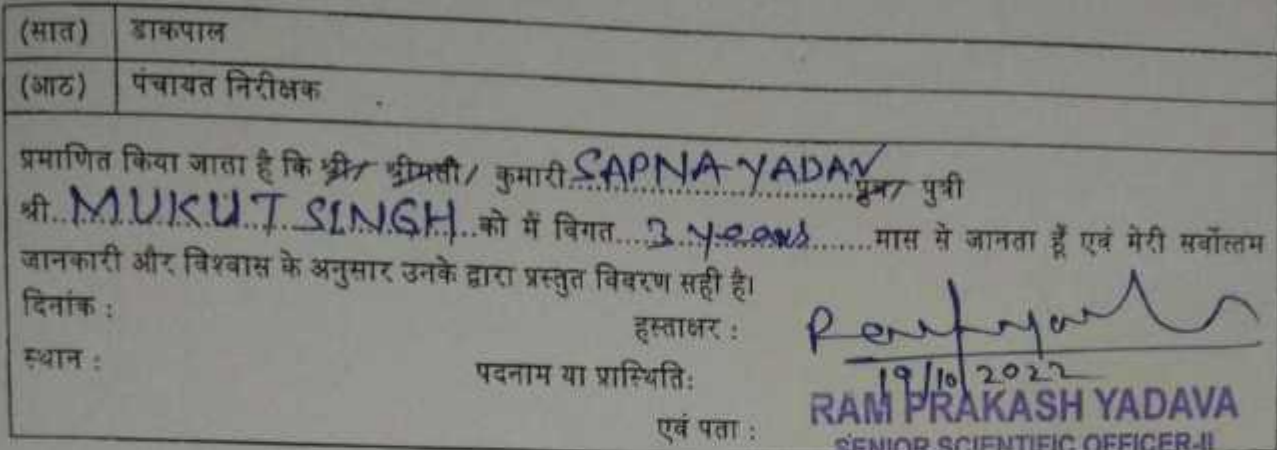 (सात) डाकपाल
(आठ) पंचायत निरीक्षक
प्रमाणित किया जाता है कि श्री/ श्रीमती/ कुमारी SAPNA YADAV पुत्र/ पुत्री
श्री MUKUT SINGH को में विगत 3 years मास से जानता हूँ एवं मेरी सर्वोत्तम
जानकारी और विश्वास के अनुसार उनके द्वारा प्रस्तुत विवरण सही है।
दिनांक :
हस्ताक्षर :
19/10/2022
स्थान :
पदनाम या प्रास्थिति:
RAM PRAKASH YADAVA
एवं पता :
SENIOR SCIENTIFIC OFFICER-II